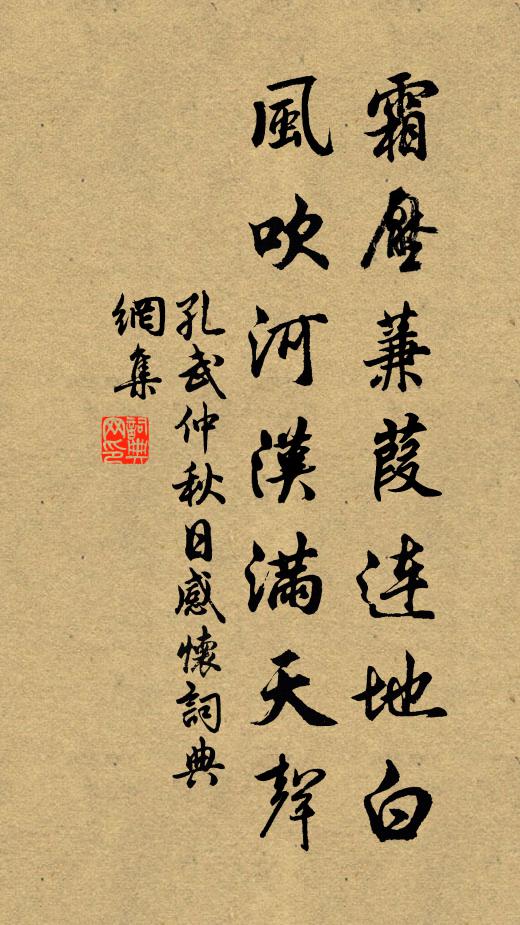 霜壓蒹葭連地白
風吹河漢滿天聲
孔武仲秋日感懷詞典
網集
詞典
网印